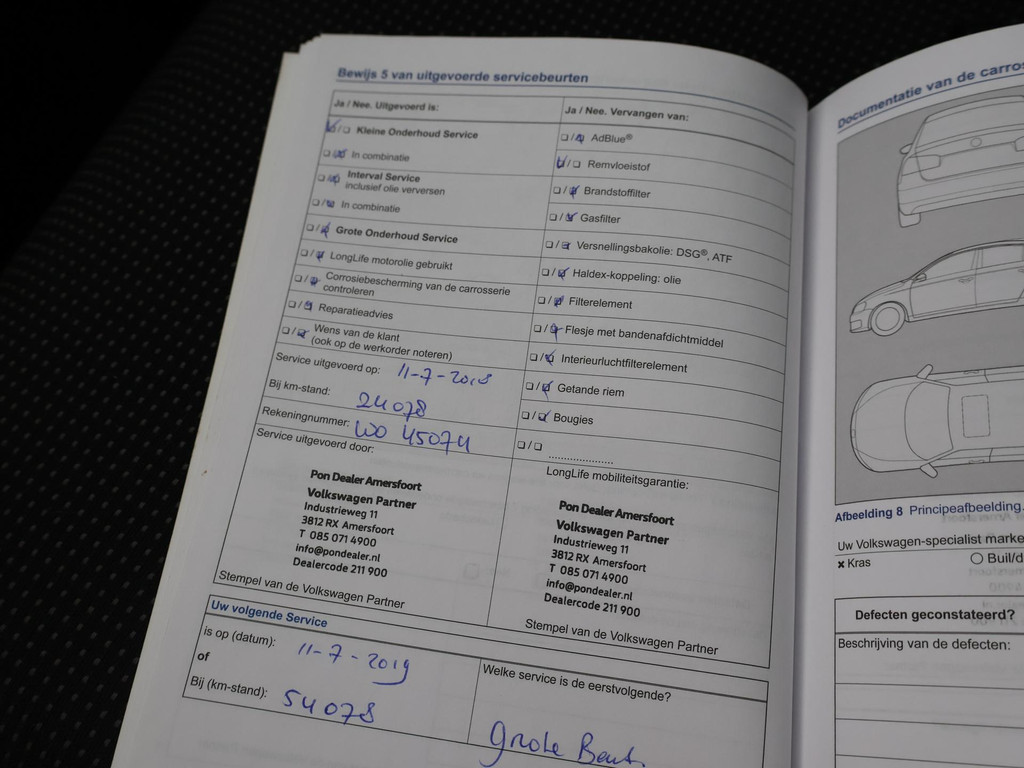 Bewijs 5 van uitgevoerde servicebeurten
Ja / Nee. Uitgevoerd is:
Kleine Onderhoud Service
In combinatie
Interval Service
inclusief olie verversen
In combinatie
Grote Onderhoud Service
LongLife motorolie gebruikt
Corrosiebescherming van de carrosserie
controleren
Reparatieadvies
Wens van de klant
(ook op de werkorder noteren)
Service uitgevoerd op: 11-7-2018
Bij km-stand: 24078
Rekeningnummer: WO 45074
Service uitgevoerd door:
Pon Dealer Amersfoort
Volkswagen Partner
Industrieweg 11
3812 RX Amersfoort
T 085 071 4900
info@pondealer.nl
Dealercode 211 900
Stempel van de Volkswagen Partner
Ja / Nee. Vervangen van:
AdBlue®
Remvloeistof
Brandstoffilter
Gasfilter
Versnellingsbakolie: DSG®, ATF
Haldex-koppeling: olie
Filterelement
Flesje met bandenafdichtmiddel
Interieurluchtfilterelement
Getande riem
Bougies
LongLife mobiliteitsgarantie:
Pon Dealer Amersfoort
Volkswagen Partner
Industrieweg 11
3812 RX Amersfoort
T 085 071 4900
info@pondealer.nl
Dealercode 211 900
Stempel van de Volkswagen Partner
Uw volgende Service
is op (datum): 11-7-2019
of
Bij (km-stand): 54078
Welke service is de eerstvolgende?
grote Beurt
Documentatie van de carros
Afbeelding 8 Principeafbeelding.
Uw Volkswagen-specialist marke
x Kras
Buil/d
Defecten geconstateerd?
Beschrijving van de defecten: